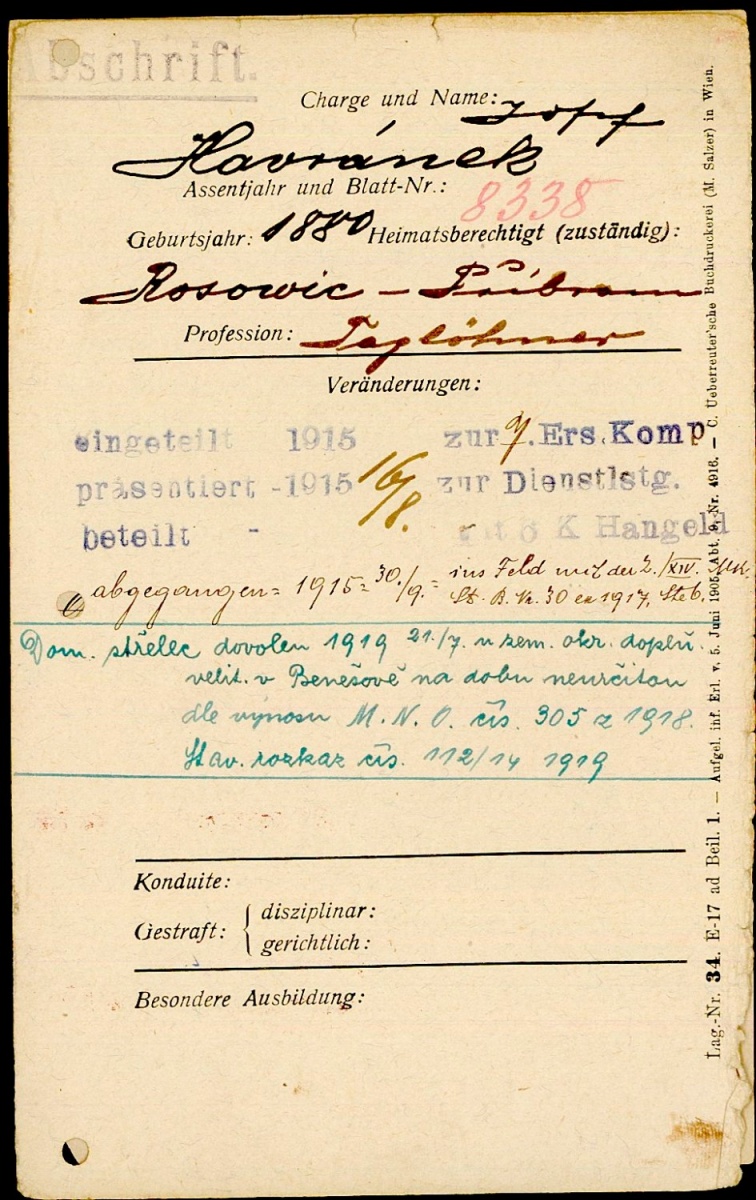 Abschrift.
Charge und Name: Josef
Havránek
Assentjahr und Blatt-Nr.: 8338
Geburtsjahr: 1880 Heimatsberechtigt (zuständig):
Rosowic - Příbram
Profession: Taglöhner
Veränderungen:
eingeteilt 1915 zur 7. Ers. Komp
präsentiert - 1915 16/8. zur Dienstlstg.
beteilt - K Hangeld
abgegangen = 1915 = 30./9. = ins Feld mit der 2./XIV.
St. B. Nr. 30 ex 1917,
Dom. střelec dovolen 1919 21./7. u zem. okr. doplň.
velit. v Benešově na dobu neurčitou
dle výnosu M. N. O. čís. 305 z 1918.
Stav. rozkaz čís. 112/14 1919
Konduite:
Gestraft: { disziplinar:
gerichtlich:
Besondere Ausbildung:
Lag.-Nr. 34. E-17 ad Beil. 1. — Aufgel. inf. Erl. v. 5. Juni 1905, Abt. 9, Nr. 4916. — C. Ueberreuter'sche Buchdruckerei (M. Salzer) in Wien.